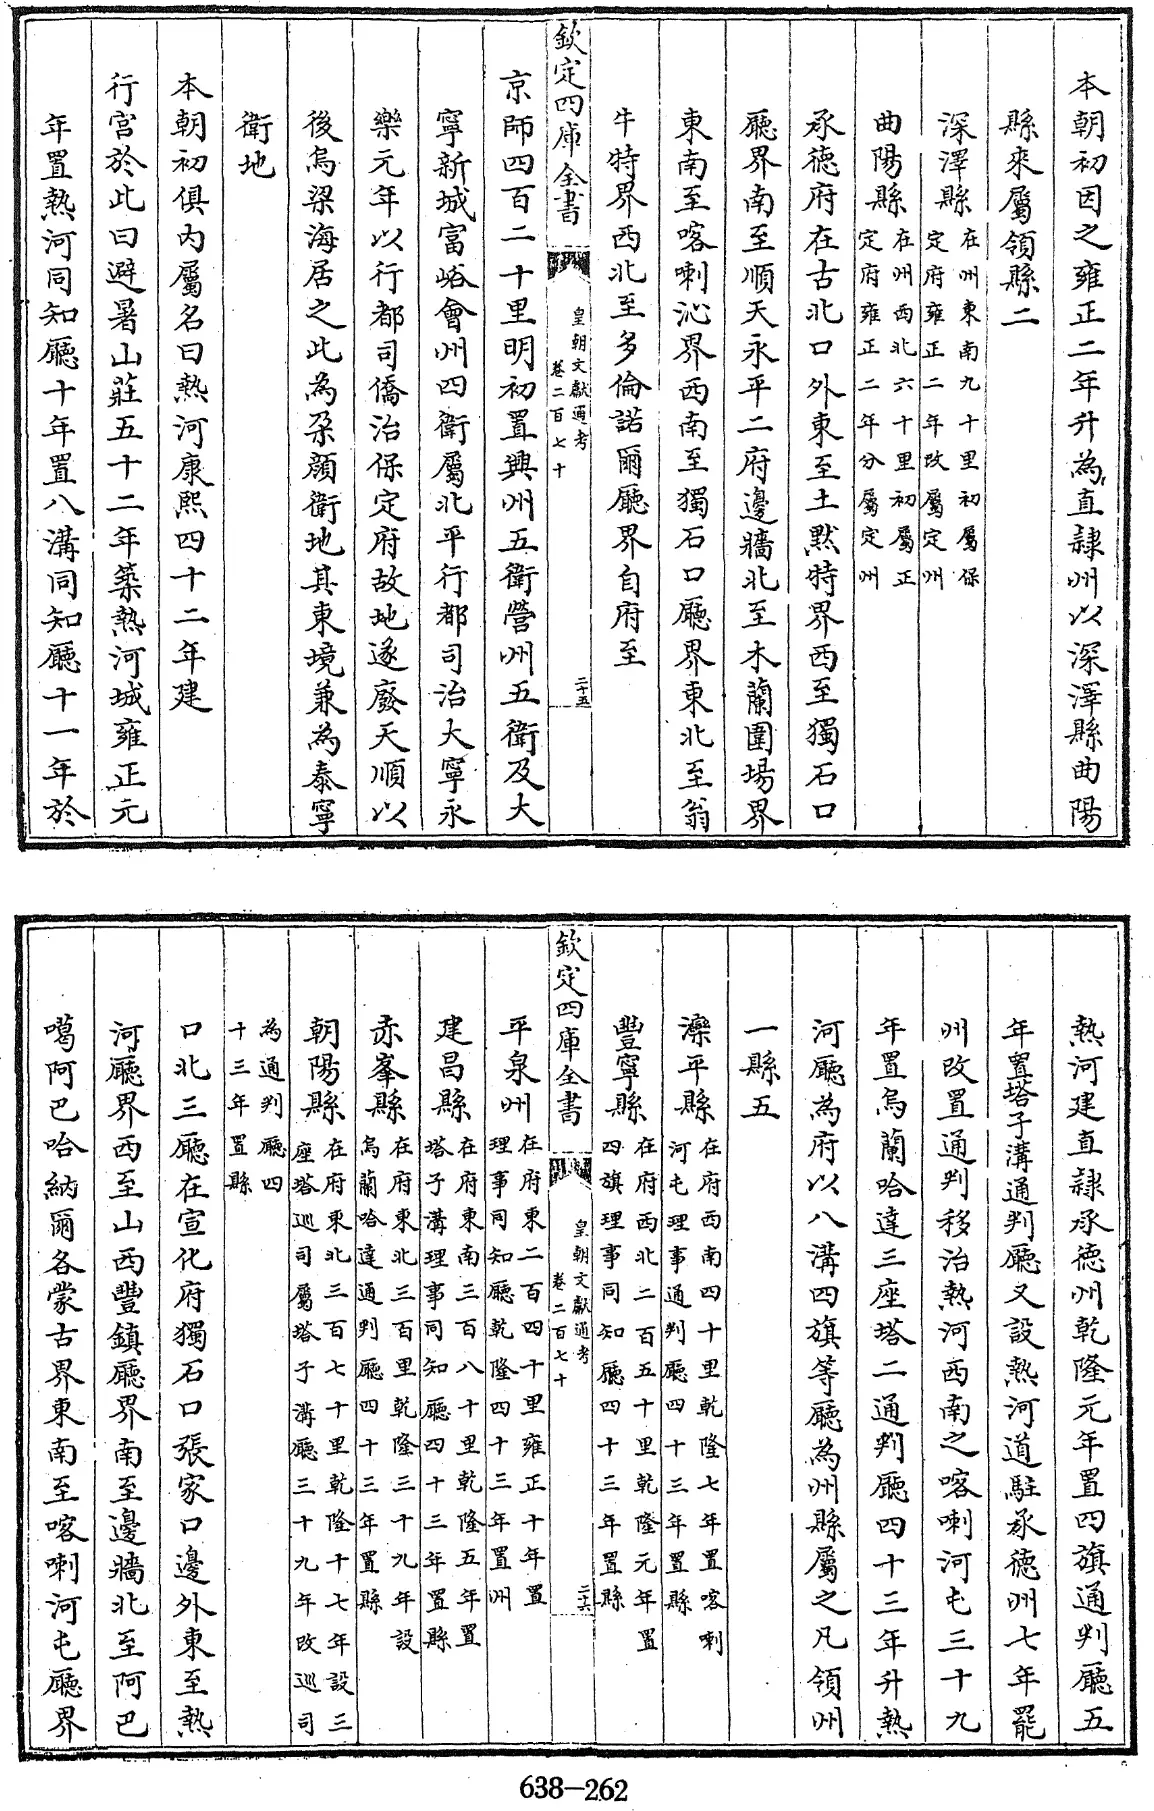 本朝初因之雍正二年升為直隷州以深澤縣曲陽
縣來屬領縣二
深澤縣在州東南九十里初屬保
定府雍正二年改屬定州
曲陽縣在州西北六十里初屬正
定府雍正二年分屬定州
承德府在古北口外東至土黙特界西至獨石口
廳界南至順天永平二府邊牆北至木蘭圍場界
東南至喀喇沁界西南至獨石口廳界東北至翁
牛特界西北至多倫諾爾廳界自府至
欽定四庫全書
皇朝文獻通考
卷二百七十
二十五
京師四百二十里明初置興州五衛營州五衛及大
寧新城富峪會州四衛屬北平行都司治大寧永
樂元年以行都司僑治保定府故地遂廢天順以
後烏梁海居之此為朶顔衛地其東境兼為泰寧
衛地
本朝初俱内屬名曰熱河康熙四十二年建
行宫於此曰避暑山莊五十二年築熱河城雍正元
年置熱河同知廳十年置八溝同知廳十一年於
熱河建直隷承德州乾隆元年置四旗通判廳五
年置塔子溝通判廳又設熱河道駐承德州七年罷
州改置通判移治熱河西南之喀喇河屯三十九
年置烏蘭哈達三座塔二通判廳四十三年升熱
河廳為府以八溝四旗等廳為州縣屬之凡領州
一縣五
灤平縣在府西南四十里乾隆七年置喀喇
河屯理事通判廳四十三年置縣
豐寧縣在府西北二百五十里乾隆元年置
四旗理事同知廳四十三年置縣
欽定四庫全書
皇朝文獻通考
卷二百七十
二十六
平泉州在府東二百四十里雍正十年置
理事同知廳乾隆四十三年置州
建昌縣在府東南三百八十里乾隆五年置
塔子溝理事同知廳四十三年置縣
赤峯縣在府東北三百里乾隆三十九年設
烏蘭哈達通判廳四十三年置縣
朝陽縣在府東北三百七十里乾隆十七年設三
座塔巡司屬塔子溝廳三十九年改巡司
為通判廳四
十三年置縣
口北三廳在宣化府獨石口張家口邊外東至熱
河廳界西至山西豐鎮廳界南至邊牆北至阿巴
噶阿巴哈納爾各蒙古界東南至喀喇河屯廳界
638-262